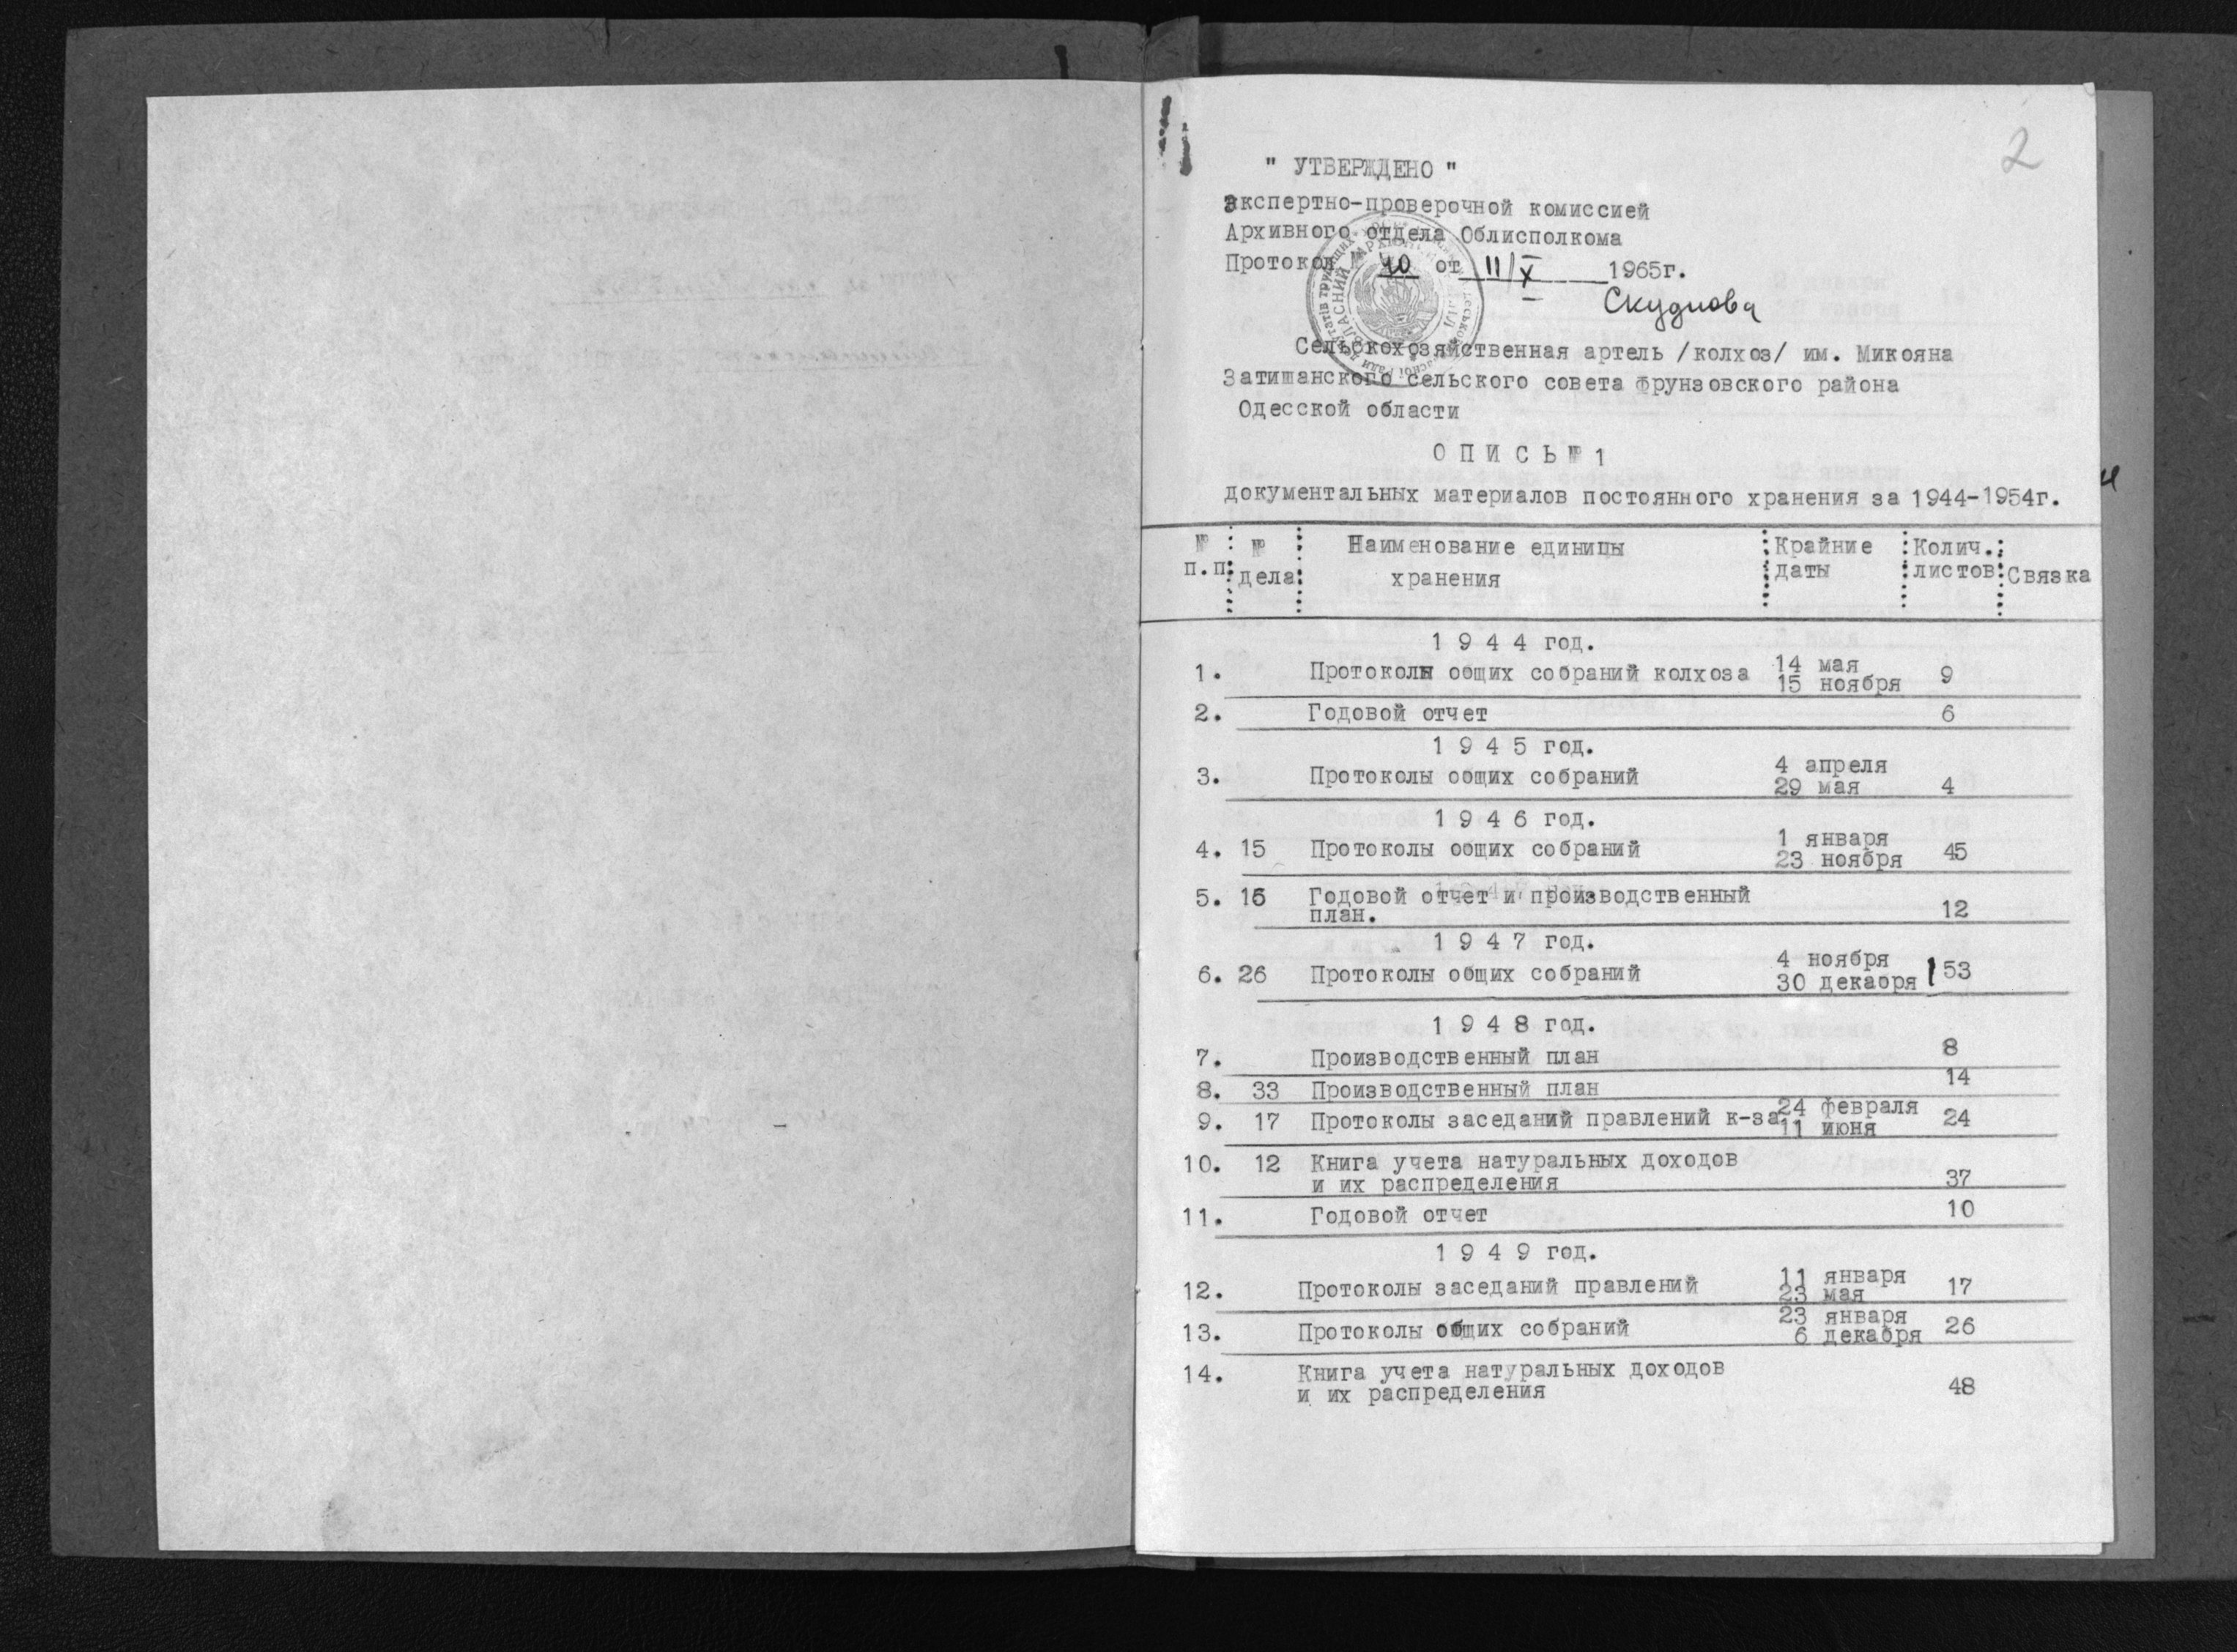 2
" УТВЕРЖДЕНО "
Экспертно-проверочной комиссией
Архивного отдела Облисполкома
Протокол № 40 от 11/X 1965г.
Скуднова
Сельскохозяйственная артель /колхоз/ им. Микояна
Затишанского сельского совета Фрунзовского района
Одесской области
О П И С Ь № 1
документальных материалов постоянного хранения за 1944-1954г.
№ п.п. № дела Наименование единицы хранения Крайние даты Колич. листов Связка
1 9 4 4 год.
1. Протоколы общих собраний колхоза 14 мая 15 ноября 9
2. Годовой отчет 6
1 9 4 5 год.
3. Протоколы общих собраний 4 апреля 29 мая 4
1 9 4 6 год.
4. 15 Протоколы общих собраний 1 января 23 ноября 45
5. 16 Годовой отчет и производственный
план. 12
1 9 4 7 год.
6. 26 Протоколы общих собраний 4 ноября 30 декабря 53
1 9 4 8 год.
7. Производственный план 8
8. 33 Производственный план 14
9. 17 Протоколы заседаний правлений к-за 24 февраля 11 июня 24
10. 12 Книга учета натуральных доходов
и их распределения 37
11. Годовой отчет 10
1 9 4 9 год.
12. Протоколы заседаний правлений 11 января 23 мая 17
13. Протоколы общих собраний 23 января 6 декабря 26
14. Книга учета натуральных доходов
и их распределения 48